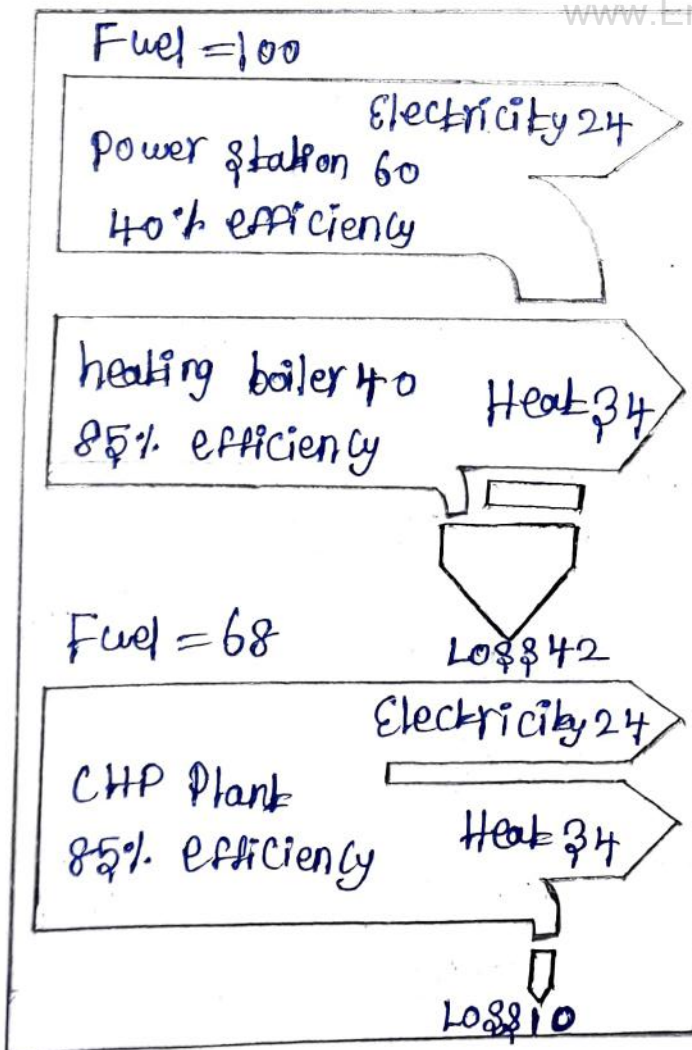 www.En
Fuel = 100
Electricity 24
Power Station 60
40% efficiency
heating boiler 40
85% efficiency
Heat 34
Loss 42
Fuel = 68
Electricity 24
CHP Plant
85% efficiency
Heat 34
Loss 10